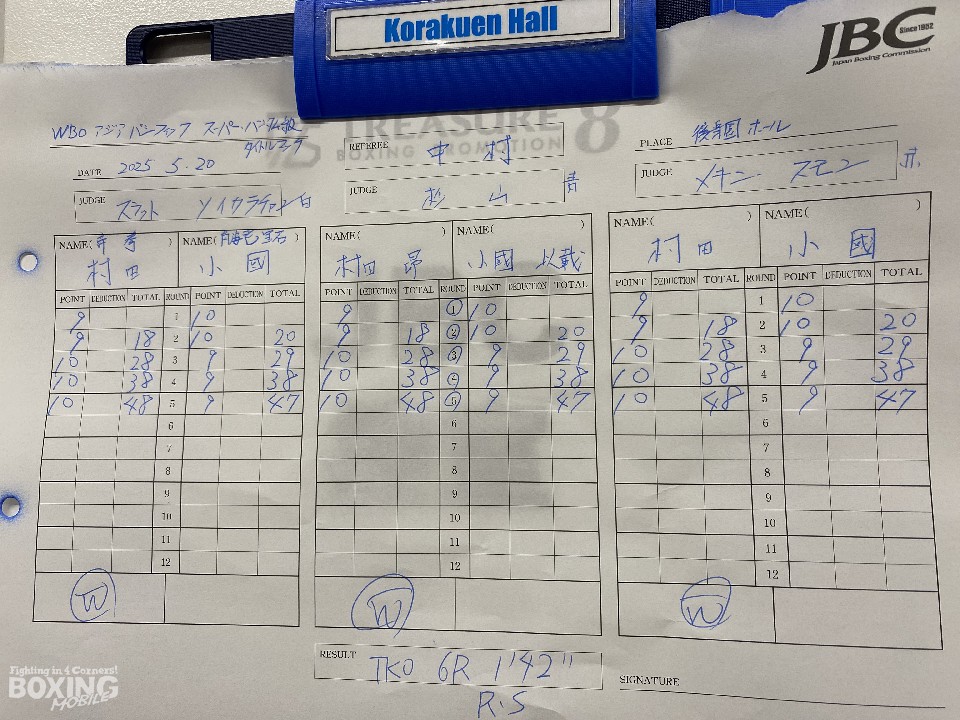 Korakuen Hall
JBC Since1952
Japan Boxing Commission
TREASURE
BOXING PROMOTION 8
WBO アジアパシフィック スーパー・バンタム級
タイトルマッチ
DATE 2025 5.20
REFEREE 中村
PLACE 後楽園ホール
JUDGE 白
JUDGE 杉山 青
JUDGE メキン・スモン 赤
NAME( ) NAME( )
村田 小國
NAME( ) NAME( )
村田 昴 小國 以載
NAME( ) NAME( )
村田 小國
POINT DEDUCTION TOTAL ROUND POINT DEDUCTION TOTAL
9 1 10
9 18 2 10 20
10 28 3 9 29
10 38 4 9 38
10 48 5 9 47
6
7
8
9
10
11
12
W
POINT DEDUCTION TOTAL ROUND POINT DEDUCTION TOTAL
9 1 10
9 18 2 10 20
10 28 3 9 29
10 38 4 9 38
10 48 5 9 47
6
7
8
9
10
11
12
W
POINT DEDUCTION TOTAL ROUND POINT DEDUCTION TOTAL
9 1 10
9 18 2 10 20
10 28 3 9 29
10 38 4 9 38
10 48 5 9 47
6
7
8
9
10
11
12
W
RESULT TKO 6R 1'42"
R.S
SIGNATURE
Fighting in 4 Corners!
BOXING
MOBILE